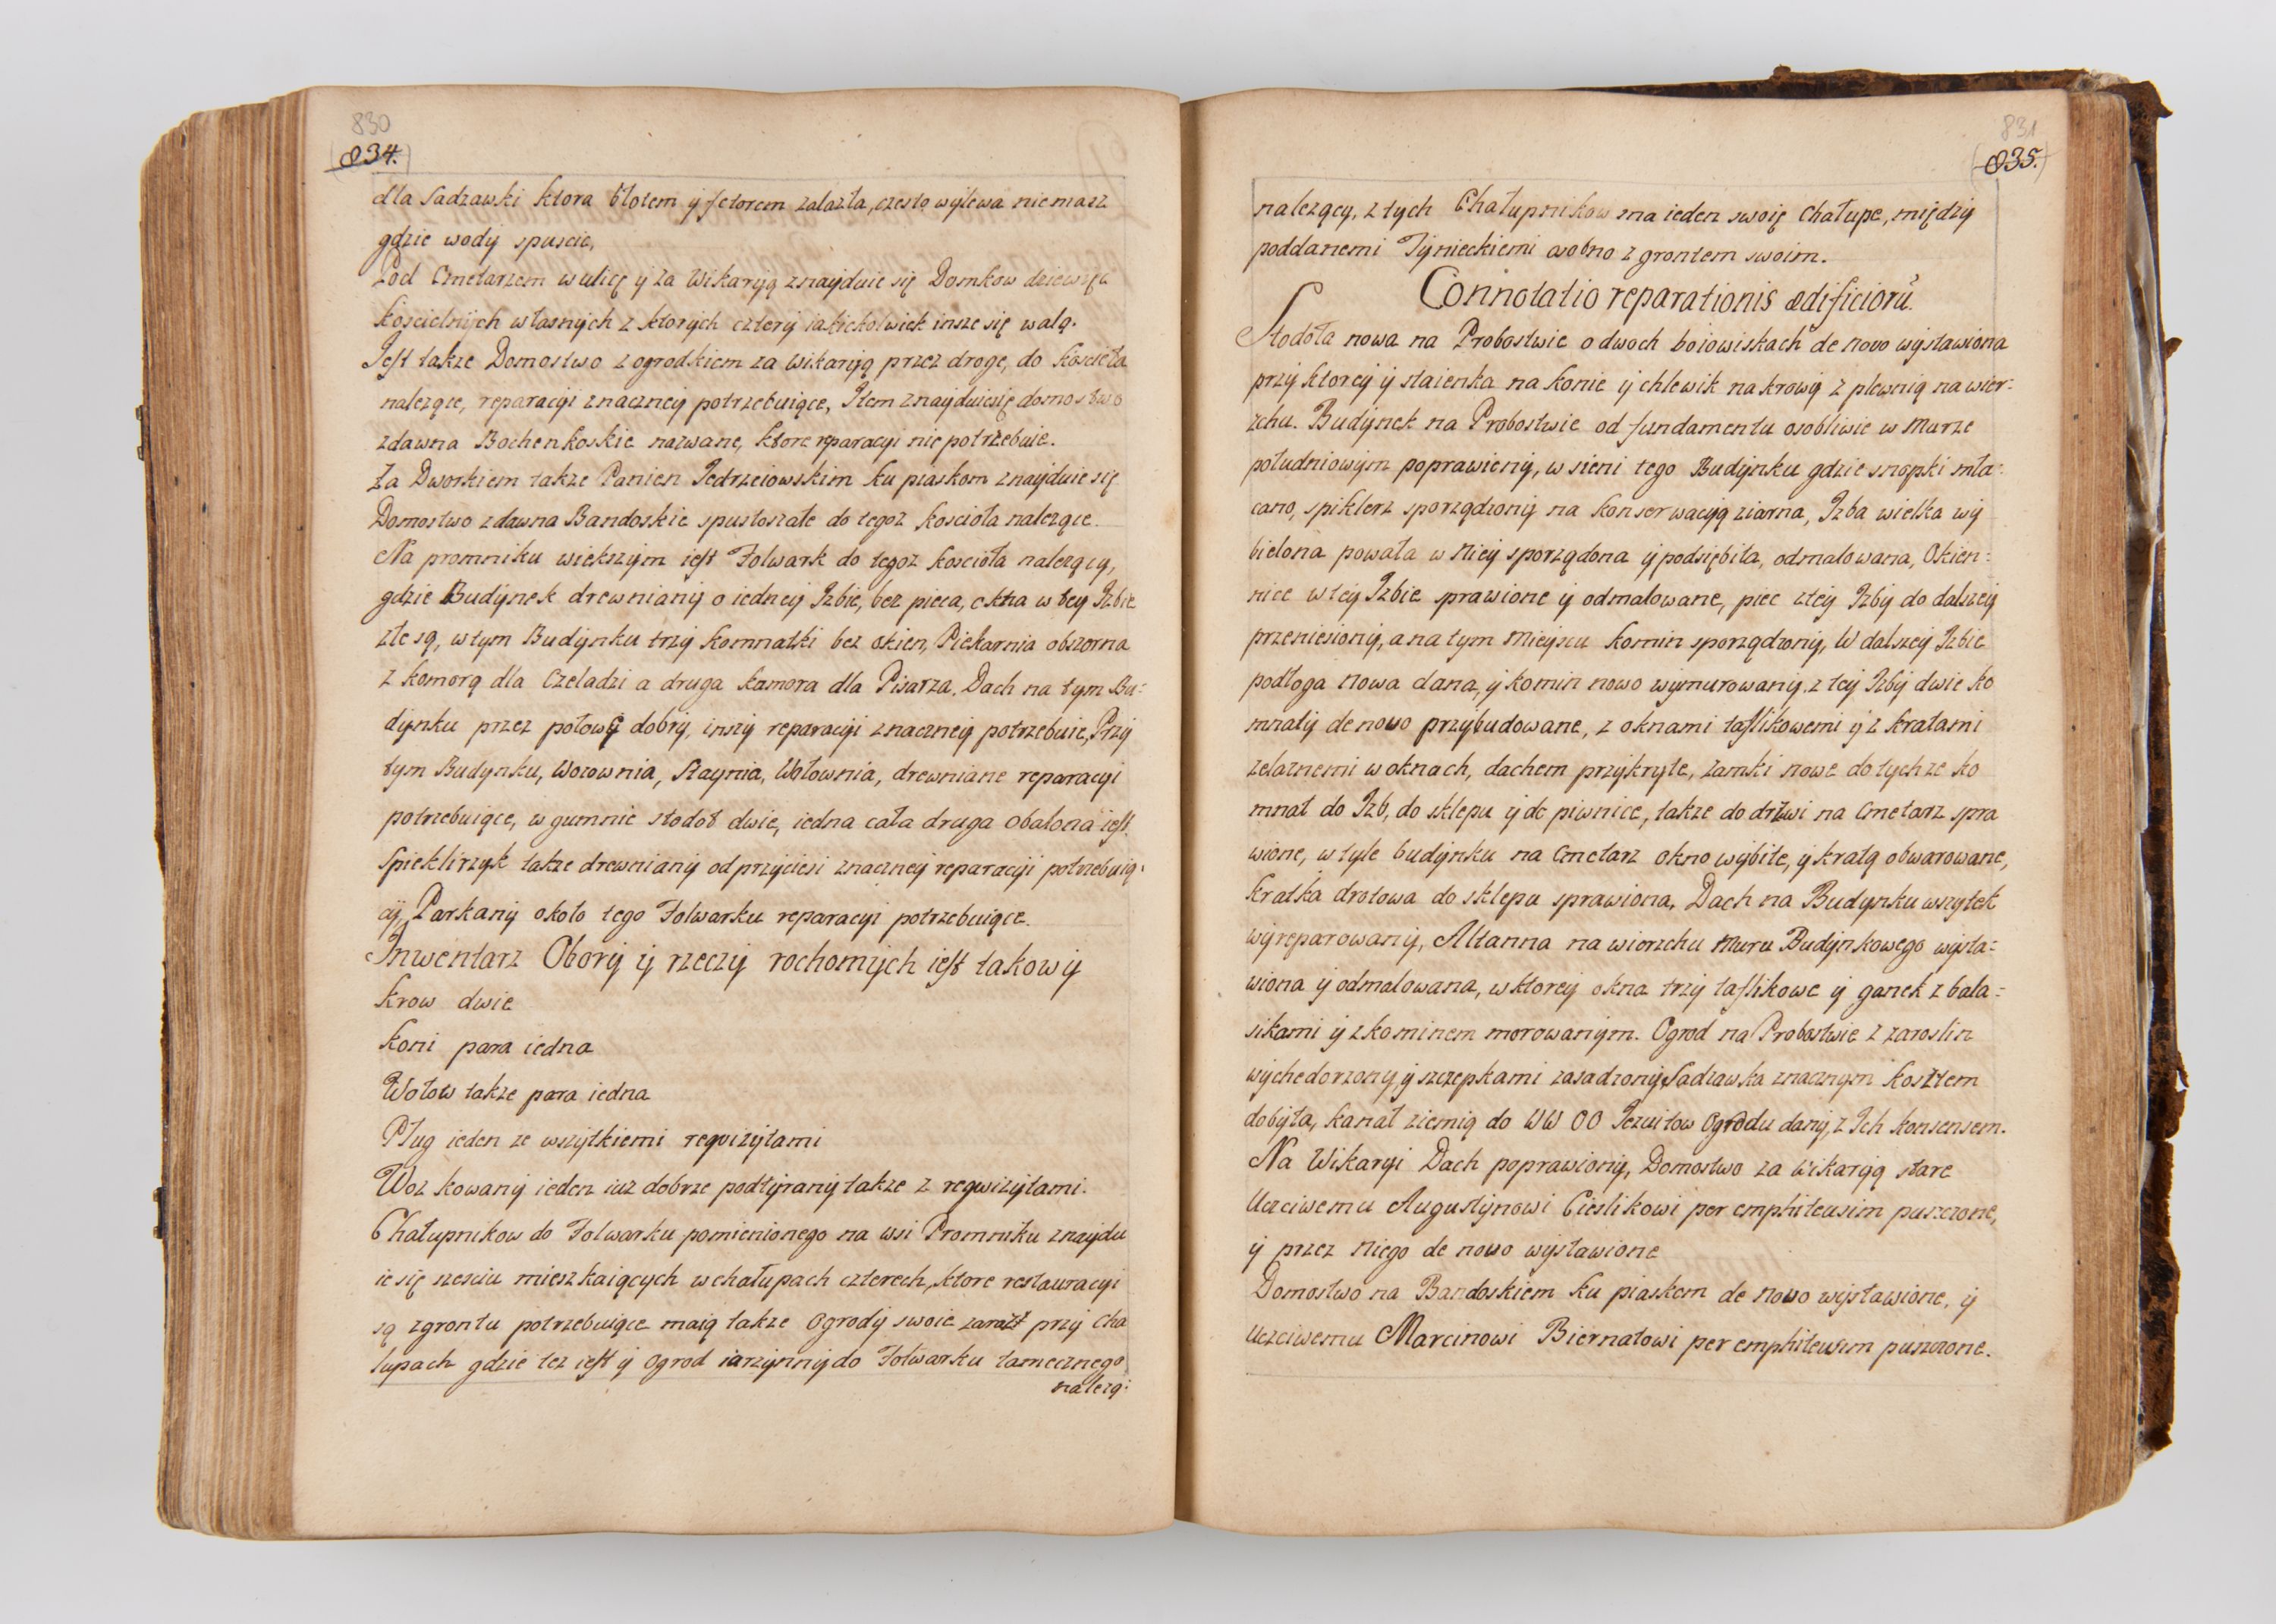 830
834.
dla Sadzawki ktora błotem ÿ fetorem zalazła, często wylewa niemasz
gdzie wodÿ spuscic,
Pod Cmetarzem w ulicę ÿ za Wikarÿą znaÿduie się Domkow dziewięc
koscielnÿch własnÿch z ktorÿch czterÿ iakiekolwiek insze się walą.
Jest takze Domostwo z ogrodkiem za Wikarÿą przez drogę, do koscioła
nalezące, reparacÿi znaczneÿ potrzebuiące, Item znaÿduiesię domostwo
zdawna Bochenkoskie nazwane, ktore reparacyi nie potrzebuie.
Za Dworkiem takze Panien Jedrzeiowskim ku piaskom znaÿduie się
Domostwo zdawna Bandoskie spustoszałe do tegoz koscioła nalezące.
Na promniku większÿm iest Folwark do tegoz koscioła nalezącÿ,
gdzie Budÿnek drewnianÿ o iedneÿ Izbie, bez pieca, okna w teÿ Izbie
złe są, w tÿm Budÿnku trzÿ komnatki bez okien, Piekarnia obszorna
z komorą dla Czeladzi a druga kamora dla Pisarza. Dach na tÿm Bu:
dÿnku przez połowę dobrÿ, inszÿ reparacÿi znaczneÿ potrzebuie, Przÿ
tÿm Budÿnku, Wozownia, Staynia, Wołownia, drewniane reparacÿi
potrzebuiące, w gumnie stodoł dwie, iedna cała druga obalona iest.
Spieklirzÿk takze drewnianÿ od przÿciesi znaczneÿ reparacÿi potrzebuią:
cÿ, Parkanÿ około tego Folwarku reparacÿi potrzebuiące.
Inwentarz Oborÿ ÿ rzeczÿ rochomÿch iest takowÿ
Krow dwie
Koni para iedna
Wołow takze para iedna
Pług ieden ze wszÿtkiemi requizÿtami
Woz kowanÿ ieden iuz dobrze podtÿranÿ takze z reqwizÿtami.
Chałupnikow do Folwarku pomienionego na wsi Promniku znaÿdu
ie się szesciu mieszkaiącÿch w chałupach czterech, ktore restauracÿi
są zgrontu potrzebuiące maią takze Ogrodÿ swoie zarazt przÿ Cha
łupach gdzie tez iest ÿ Ogrod iarzÿnnÿ do Folwarku tamecznego
nalezą:
831
835.
nalezącÿ, z tÿch Chałupnikow ma ieden swoię Chałupe, międzÿ
poddanemi Tÿnieckiemi osobno z grontem swoim.
Connotatio reparationis ædificiorū.
Stodoła nowa na Probostwie o dwoch boiowiskach de novo wÿstawiona
przÿ ktoreÿ ÿ staienka na konie ÿ chlewik na krowÿ z plewnią na wier:
zchu. Budÿnek na Probostwie od fundamentu osobliwie w Murze
południowÿm poprawienÿ, w sieni tego Budÿnku gdzie snopki mła:
cano, spiklerz sporządzonÿ na konserwacÿą ziarna, Izba wielka wÿ
bielona powała w nieÿ sporządona ÿ podsiębita, odmalowana, Okien:
nice w teÿ Izbie sprawione ÿ odmalowane, piec z teÿ Izbÿ do dalszeÿ
przeniesionÿ, a na tÿm Mieÿscu komin sporządzonÿ, W dalszeÿ Izbie
podłoga nowa dana, ÿ komin nowo wÿmurowanÿ, z teÿ Izbÿ dwie ko
mnatÿ de novo przybudowane, z oknami taflikowemi ÿ z kratami
zelaznemi w oknach, dachem przÿkrÿte, zamki nowe do tÿchze ko
mnat do Izb, do sklepu ÿ do piwnice, takze do drzwi na Cmetarz spra
wione, w tÿle budÿnku na Cmetarz okno wÿbite, ÿ kratą obwarowane,
kratka drotowa do sklepu sprawiona, Dach na Budÿnku wszÿtek
wÿreparowanÿ, Altanna na wierzchu Muru Budÿnkowego wÿsta:
wiona ÿ odmalowana, w ktoreÿ okna trzÿ taflikowe ÿ ganek z bala:
sikami ÿ z kominem morowanÿm. Ogrod na Probostwie z zaroslin
wÿchedorzonÿ, ÿ szczepkami zasadzonÿ, Sadzawka znacznÿm kosztem
dobÿta, kanał ziemią do WW OO Jezuitow Ogrodu danÿ, z Ich konsensem.
Na Wikaryi Dach poprawionÿ, Domostwo za Wikarÿą stare
Uczciwemu Augustÿnowi Cieslikowi per emphiteusim puszczone,
ÿ przez Niego de novo wÿstawione
Domostwo na Bandoskiem ku piaskom de novo wÿstawione, ÿ
Uczciwemu Marcinowi Biernatowi per emphiteusim puszczone.